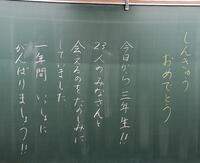 しんきゅう
おめでとう
今日から三年生!!
23人のみなさんと
会えるのをたのしみに
していました
一年間いっしょに
がんばりましょう!!